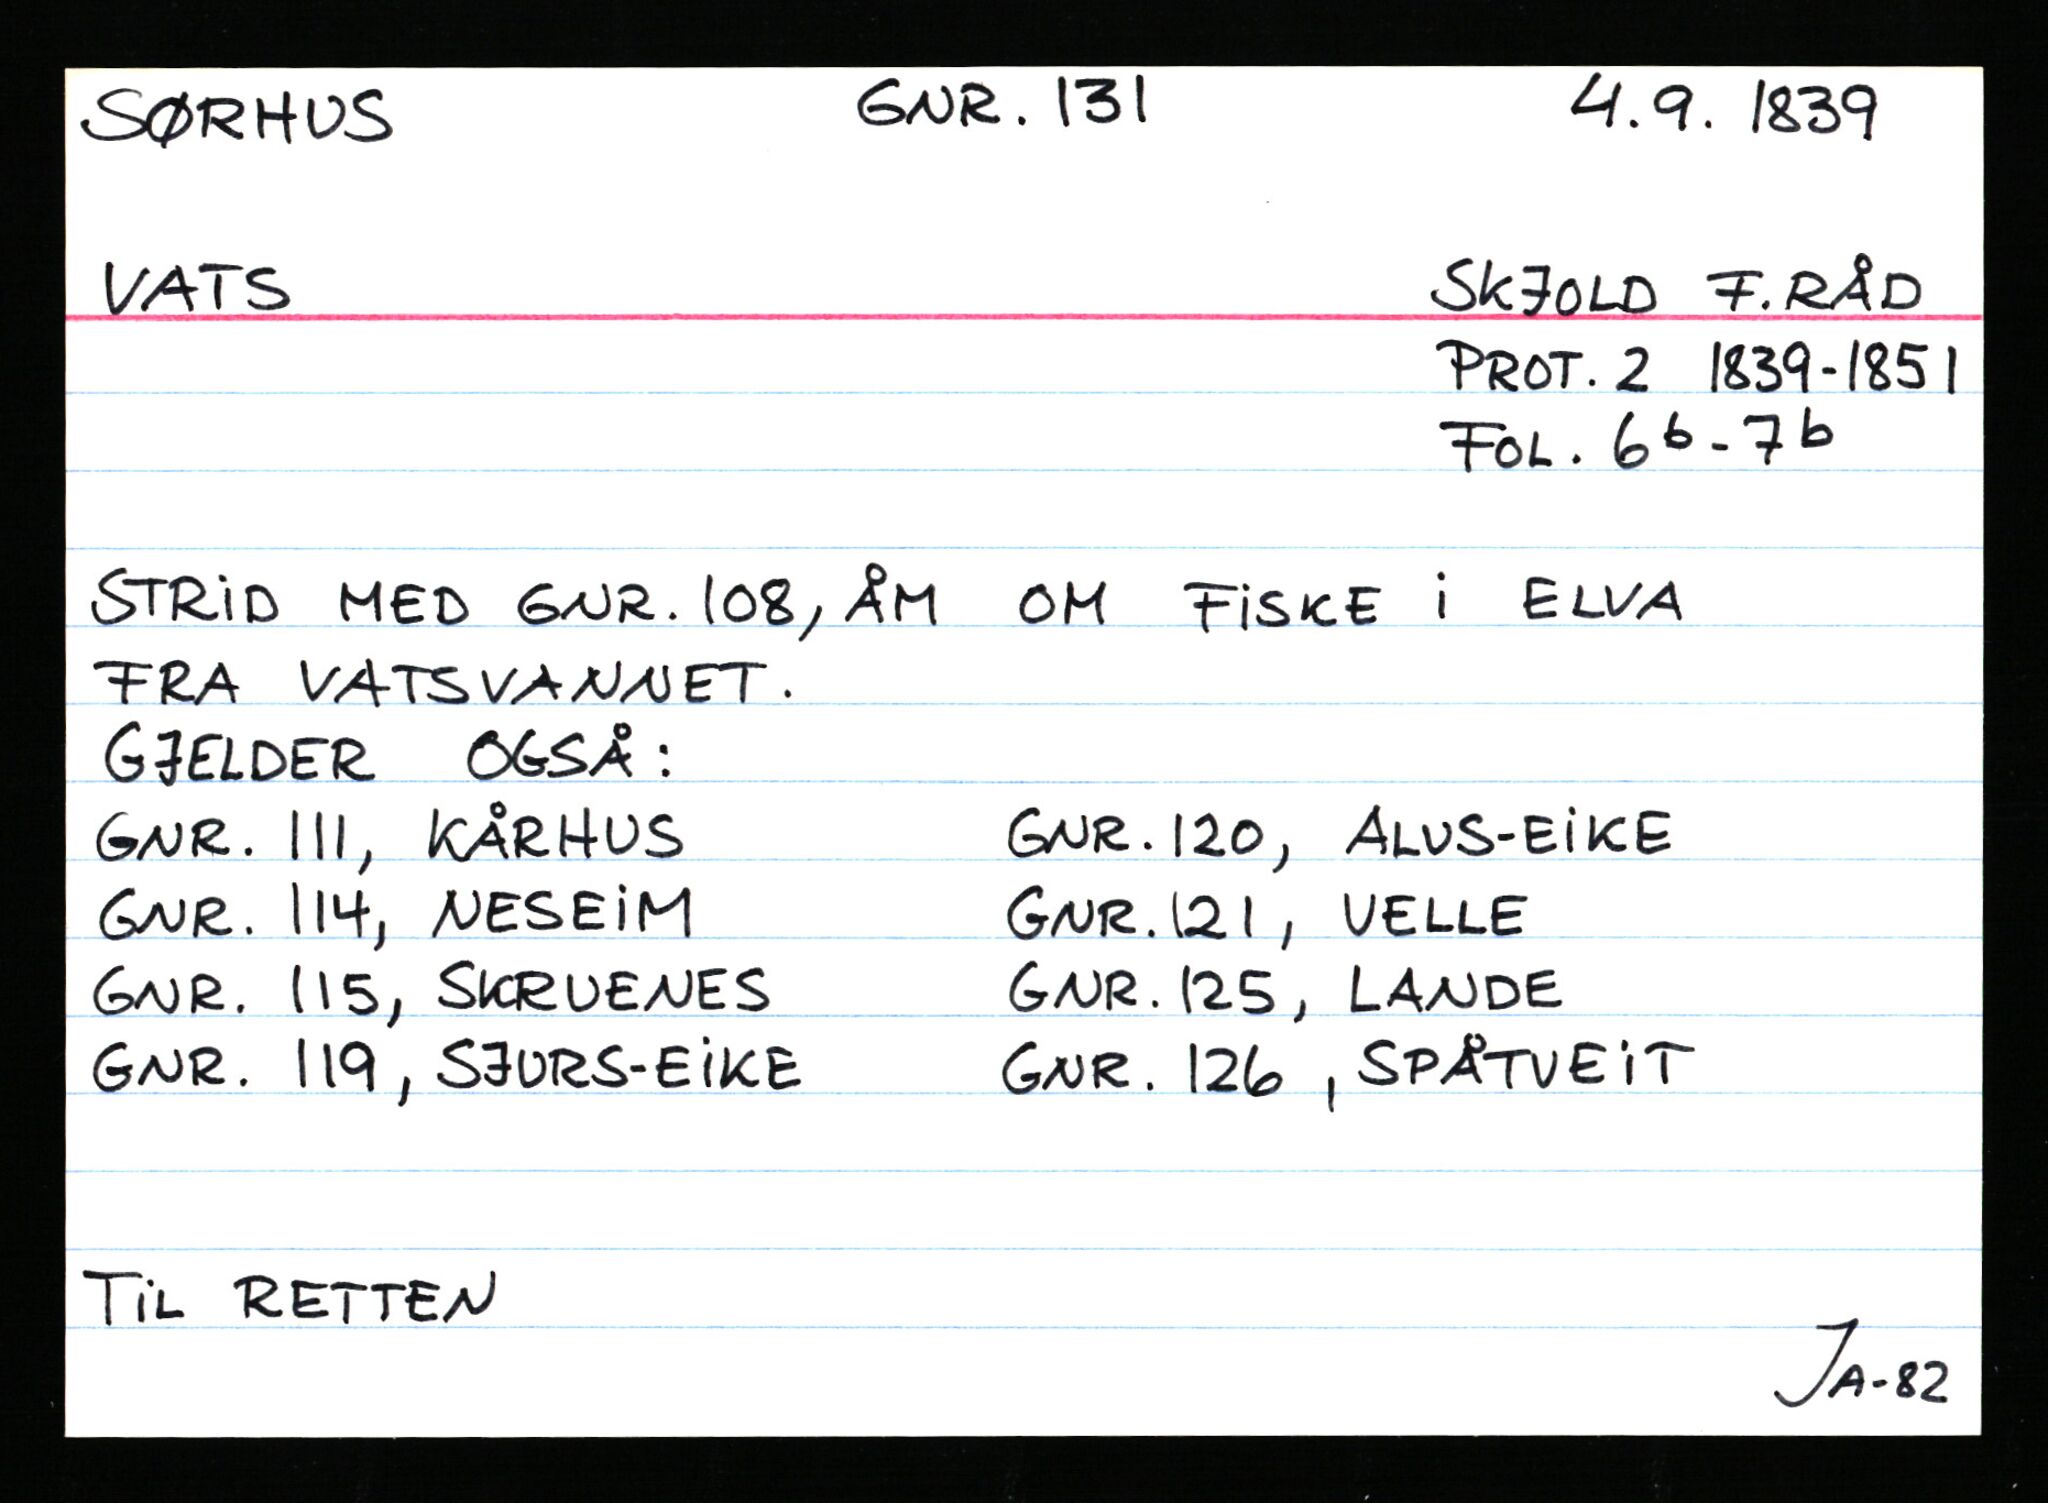 SØRHUS GNR. 131 4.9. 1839
VATS SKJOLD F.RÅD
PROT. 2 1839-1851
FOL. 6b-7b
STRID MED GNR. 108, ÅM OM FISKE I ELVA
FRA VATSVANNET.
GJELDER OGSÅ:
GNR. 111, KÅRHUS GNR. 120, ALVS-EIKE
GNR. 114, NESEIM GNR. 121, VELLE
GNR. 115, SKRUENES GNR. 125, LANDE
GNR. 119, SJURS-EIKE GNR. 126, SPÅTVEIT
TIL RETTEN
JA-82